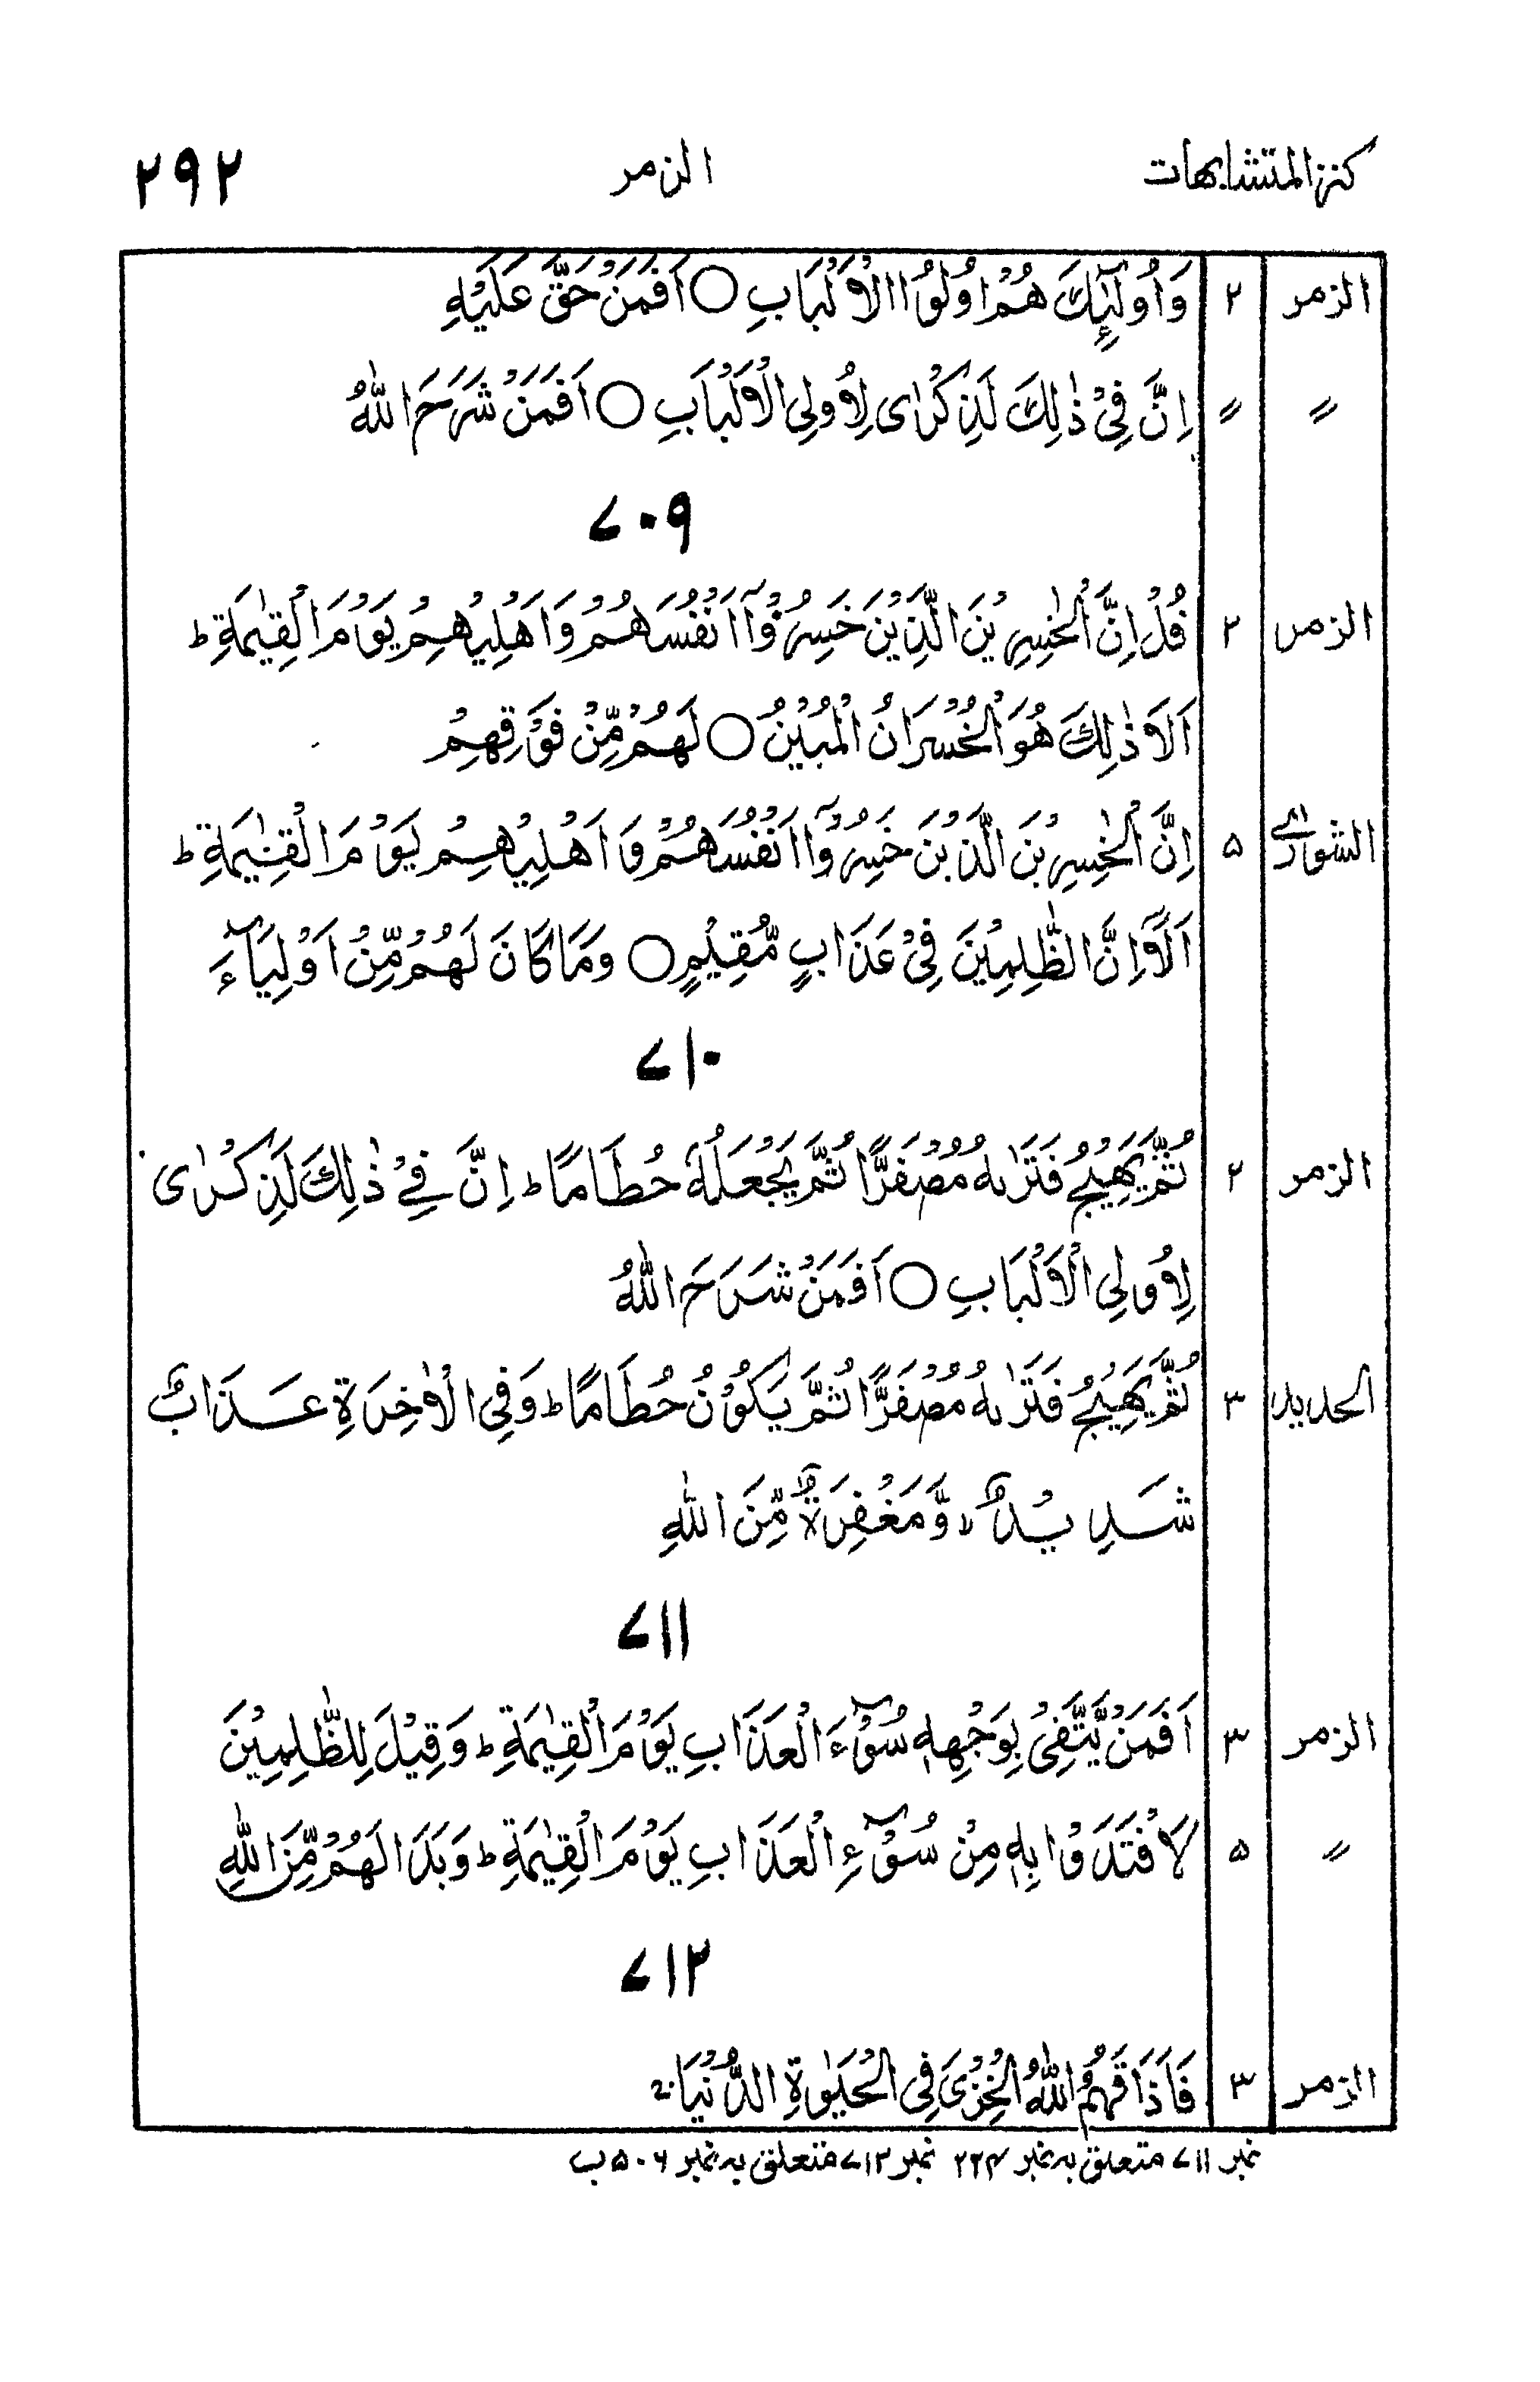 کنز المتشابهات الزمر ۲۹۲
الزمر ۲ وَاُولٰٓئِكَ هُمْ اُولُوا الْاَلْبَابِ ○ اَفَمَنْ حَقَّ عَلَيْهِ
〃 〃 اِنَّ فِيْ ذٰلِكَ لَذِكْرٰى لِاُولِى الْاَلْبَابِ ○ اَفَمَنْ شَرَحَ اللّٰهُ
۷۰۹
الزمر ۲ قُلْ اِنَّ الْخٰسِرِيْنَ الَّذِيْنَ خَسِرُوْٓا اَنْفُسَهُمْ وَاَهْلِيْهِمْ يَوْمَ الْقِيٰمَةِ ؕ
اَلَا ذٰلِكَ هُوَ الْخُسْرَانُ الْمُبِيْنُ ○ لَهُمْ مِّنْ فَوْقِهِمْ
الشورٰى ۵ اِنَّ الْخٰسِرِيْنَ الَّذِيْنَ خَسِرُوْٓا اَنْفُسَهُمْ وَاَهْلِيْهِمْ يَوْمَ الْقِيٰمَةِ ؕ
اَلَآ اِنَّ الظّٰلِمِيْنَ فِيْ عَذَابٍ مُّقِيْمٍ ○ وَمَا كَانَ لَهُمْ مِّنْ اَوْلِيَآءَ
۷۱۰
الزمر ۲ ثُمَّ يَهِيْجُ فَتَرٰىهُ مُصْفَرًّا ثُمَّ يَجْعَلُهٗ حُطَامًا ؕ اِنَّ فِيْ ذٰلِكَ لَذِكْرٰى
لِاُولِى الْاَلْبَابِ ○ اَفَمَنْ شَرَحَ اللّٰهُ
الحديد ۳ ثُمَّ يَهِيْجُ فَتَرٰىهُ مُصْفَرًّا ثُمَّ يَكُوْنُ حُطَامًا ؕ وَفِى الْاٰخِرَةِ عَذَابٌ
شَدِيْدٌ ۙ وَّمَغْفِرَةٌ مِّنَ اللّٰهِ
۷۱۱
الزمر ۳ اَفَمَنْ يَّتَّقِىْ بِوَجْهِهٖ سُوْٓءَ الْعَذَابِ يَوْمَ الْقِيٰمَةِ ؕ وَقِيْلَ لِلظّٰلِمِيْنَ
〃 ۵ لَافْتَدَوْا بِهٖ مِنْ سُوْٓءِ الْعَذَابِ يَوْمَ الْقِيٰمَةِ ؕ وَبَدَا لَهُمْ مِّنَ اللّٰهِ
۷۱۲
الزمر ۳ فَاَذَاقَهُمُ اللّٰهُ الْخِزْىَ فِى الْحَيٰوةِ الدُّنْيَا ۚ
نمبر ۷۱۱ متعلق بہ نمبر ۲۲۴ نمبر ۷۱۲ متعلق بہ نمبر ۵۰۶ ب